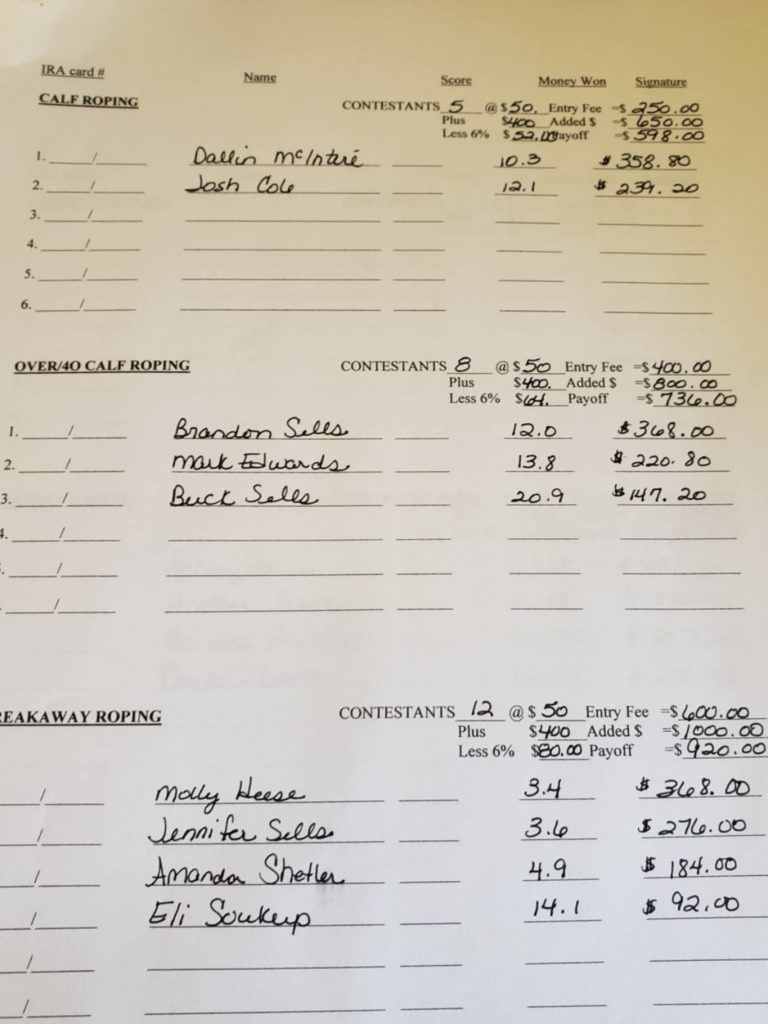 IRA card # Name Score Money Won Signature
CALF ROPING CONTESTANTS 5 @ $50. Entry Fee =$ 250.00
Plus $400 Added $ =$ 650.00
Less 6% $52.00 Payoff =$ 598.00
1. / Dallin McIntire 10.3 $358.80
2. / Josh Cole 12.1 $239.20
3. /
4. /
5. /
6. /
OVER/40 CALF ROPING CONTESTANTS 8 @ $50 Entry Fee =$400.00
Plus $400. Added $ =$800.00
Less 6% $64. Payoff =$ 736.00
1. / Brandon Sells 12.0 $368.00
2. / Mark Edwards 13.8 $220.80
3. / Buck Sells 20.9 $147.20
4. /
. /
/
EAKAWAY ROPING CONTESTANTS 12 @ $50 Entry Fee =$600.00
Plus $400 Added $ =$1000.00
Less 6% $80.00 Payoff =$920.00
/ Molly Heese 3.4 $368.00
/ Jennifer Sells 3.6 $276.00
/ Amanda Shetler 4.9 $184.00
/ Eli Soukup 14.1 $92.00
/
/